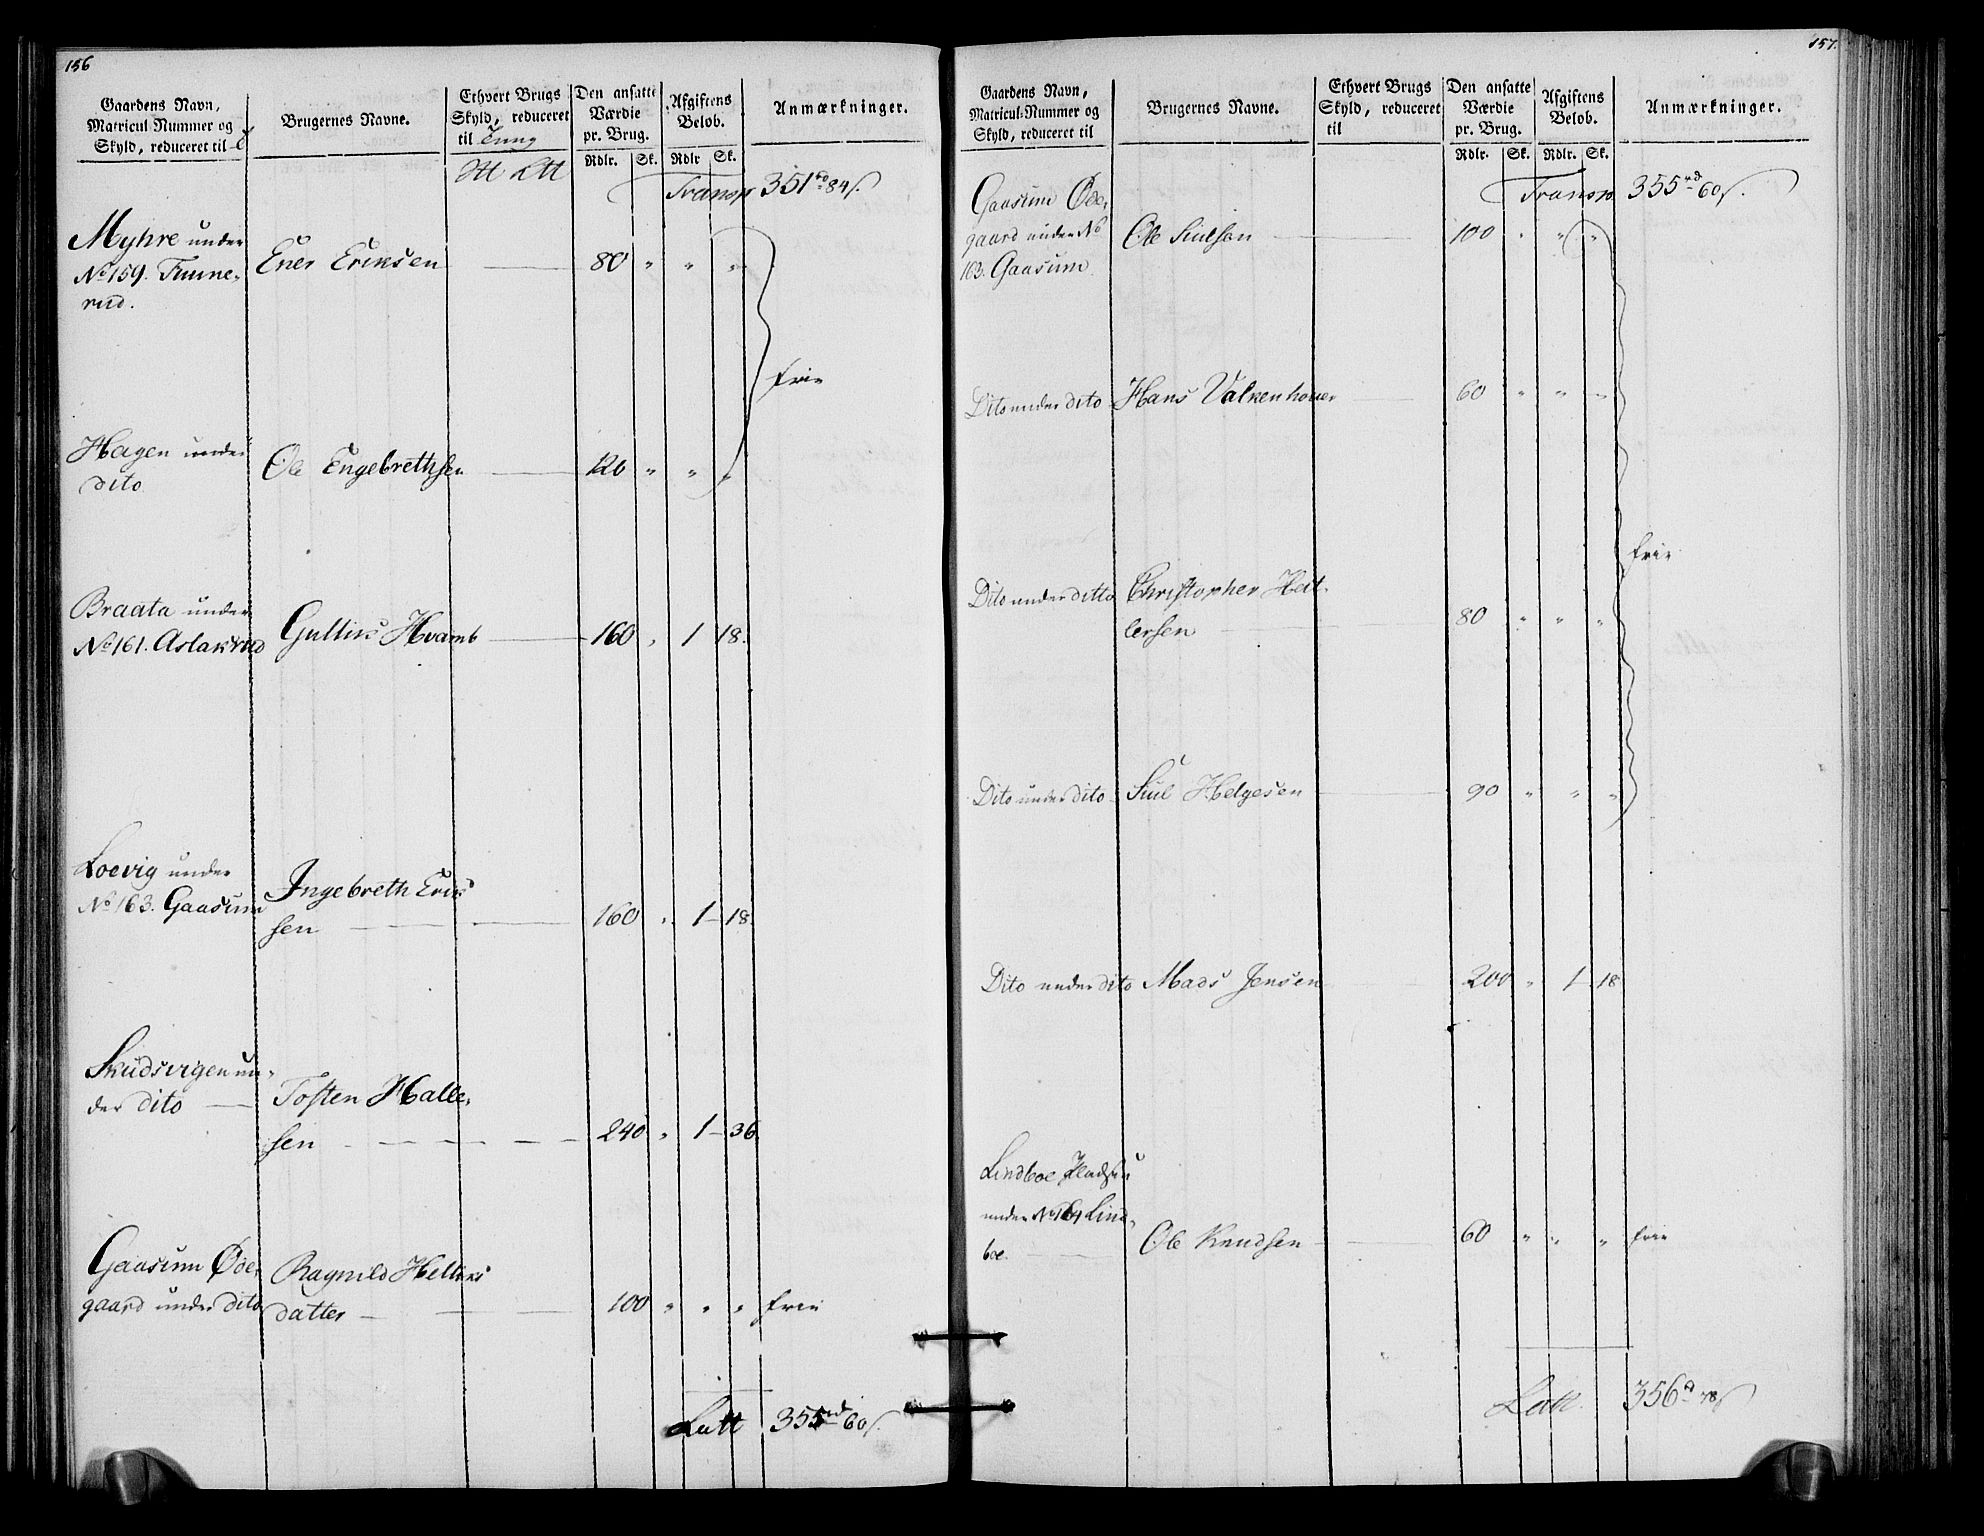 156
Gaardens Navn,
Matricul Nummer og
Skyld, reduceret til
Brugernes Navne.
Ethvert Brugs
Skyld, reduceret
til Tung
Den ansatte
Værdie
pr. Brug.
Afgiftens
Beløb.
Anmærkninger.
Rdlr. Sk. Rdlr Sk.
Transp 351 rd 84 s.
Myhre under
No 159. Finne-
rud.
Ener Eriksen — 80 " " "
frie
Hagen under
dito
Ole Engebrethsen — 120 " " "
Braata under
No 161. Aslakrud
Gullius Hvamb — 160 " 1 18.
Loevig under
No 163. Gaasum
Ingebreth Erik
sen — 160 " 1 - 18
Skudsvigen un-
der dito —
Tosten Halle-
sen — 240 " 1 - 36
Gaasum Øde-
gaard under dito
Ragnild Hellers
datter — 100 " " " frie
Latt 355 rd 60 s.
157.
Gaardens Navn,
Matricul-Nummer og
Skyld, reduceret til
Brugernes Navne.
Ethvert Brugs
Skyld, reduceret
til
Den ansatte
Værdie
pr. Brug.
Afgiftens
Beløb.
Anmærkninger.
Rdlr. Sk. Rdlr. Sk.
Transp 355 rd 60 s.
Gaasum Øde-
gaard under No
163. Gaasum
Ole Siulsen — 100 " " "
Dito under dito Hans Valkenhouer — 60 " " "
frie
Dito under ditto Christopher Hel-
lersen — 80 " " "
Dito under dito Siul Helgesen — 90 " " "
Dito under dito Mads Jensen — 200 " 1 - 18
Lindboe Pladsen
under No 164 Lind-
boe. —
Ole Knudsen — 60 " " " frie
Latt. 356 rd 78 s